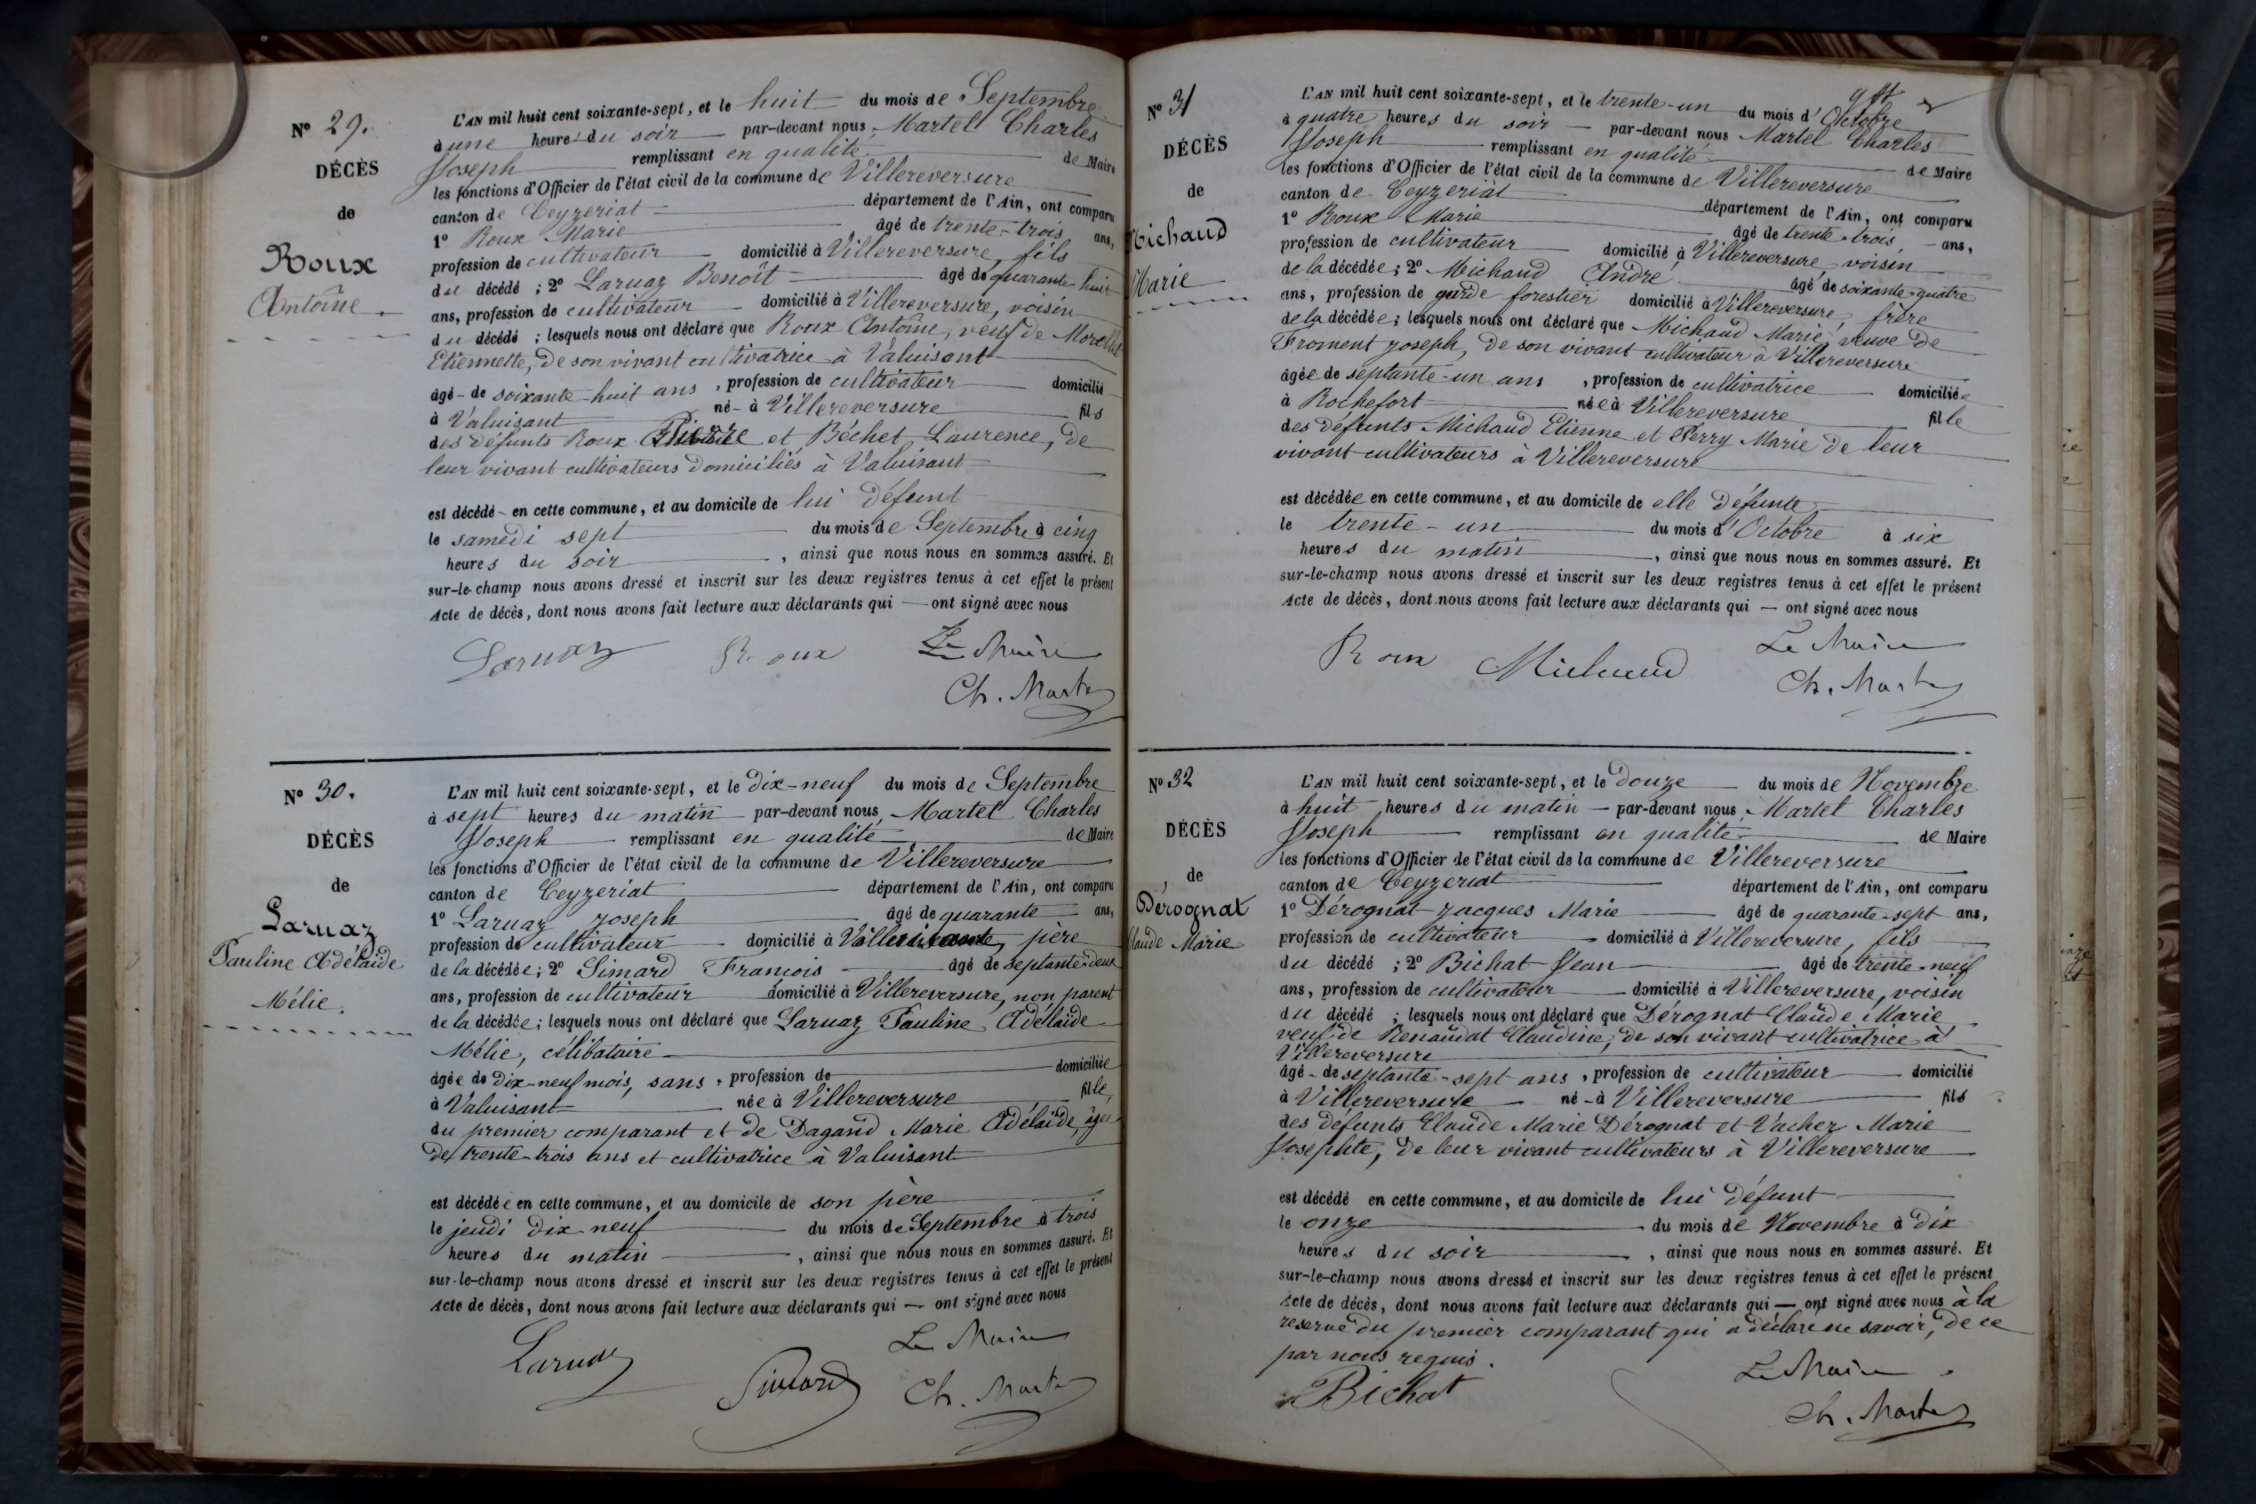 N° 29.
DÉCÈS
de
Roux
Antoine.
L'AN mil huit cent soixante-sept, et le huit du mois de Septembre
à une heure du soir par-devant nous, Martel Charles
Joseph remplissant en qualité de Maire
les fonctions d'Officier de l'état civil de la commune de Villereversure
canton de Ceyzeriat département de l'Ain, ont comparu
1° Roux Marie âgé de trente-trois ans,
profession de cultivateur domicilié à Villereversure, fils
du décédé ; 2° Laruaz Benoît âgé de quarante-huit
ans, profession de cultivateur domicilié à Villereversure, voisin
du décédé ; lesquels nous ont déclaré que Roux Antoine, veuf de
Etiennette, de son vivant cultivatrice à Valuisant
âgé de soixante-huit ans, profession de cultivateur domicilié
à Valuisant né à Villereversure fils
des défunts Roux Pierre et Béchet Laurence, de
leur vivant cultivateurs domiciliés à Valuisant
est décédé en cette commune, et au domicile de lui défunt
le samedi sept du mois de Septembre à cinq
heures du soir, ainsi que nous nous en sommes assuré. Et
sur-le-champ nous avons dressé et inscrit sur les deux registres tenus à cet effet le présent
Acte de décès, dont nous avons fait lecture aux déclarants qui — ont signé avec nous
Laruaz Roux Le Maire
Ch. Martel
N° 30.
DÉCÈS
de
Laruaz
Pauline Adélaïde
Mélie.
L'AN mil huit cent soixante-sept, et le dix-neuf du mois de Septembre
à sept heures du matin par-devant nous, Martel Charles
Joseph remplissant en qualité de Maire
les fonctions d'Officier de l'état civil de la commune de Villereversure
canton de Ceyzeriat département de l'Ain, ont comparu
1° Laruaz Joseph âgé de quarante ans,
profession de cultivateur domicilié à père
de la décédée ; 2° Simard François âgé de septante-deux
ans, profession de cultivateur domicilié à Villereversure, non parent
de la décédée ; lesquels nous ont déclaré que Laruaz Pauline Adélaïde
Mélie, célibataire
âgée de dix-neuf mois, sans, profession de domiciliée
à Valuisant née à Villereversure fille,
du premier comparant et de Dagand Marie Adélaïde, âgée
de trente-trois ans et cultivatrice à Valuisant
est décédée en cette commune, et au domicile de son père
le jeudi dix neuf du mois de Septembre à trois
heures du matin, ainsi que nous nous en sommes assuré. Et
sur-le-champ nous avons dressé et inscrit sur les deux registres tenus à cet effet le présent
Acte de décès, dont nous avons fait lecture aux déclarants qui — ont signé avec nous
Laruaz Simard Le Maire
Ch. Martel
N° 31
DÉCÈS
de
Michaud
Marie
L'AN mil huit cent soixante-sept, et le trente-un du mois d'Octobre
à quatre heures du soir par-devant nous Martel Charles
Joseph remplissant en qualité de Maire
les fonctions d'Officier de l'état civil de la commune de Villereversure
canton de Ceyzeriat département de l'Ain, ont comparu
1° Roux Marie âgé de trente-trois ans,
profession de cultivateur domicilié à Villereversure voisin
de la décédée ; 2° Michaud André âgé de soixante-quatre
ans, profession de garde forestier domicilié à Villereversure, frère
de la décédée ; lesquels nous ont déclaré que Michaud Marie, veuve de
Froment Joseph, de son vivant cultivateur à Villereversure
âgée de septante-un ans, profession de cultivatrice domiciliée
à Rochefort née à Villereversure fille
des défunts Michaud Etienne et Perry Marie de leur
vivant cultivateurs à Villereversure
est décédée en cette commune, et au domicile de elle défunte
le trente-un du mois d'Octobre à six
heures du matin, ainsi que nous nous en sommes assuré. Et
sur-le-champ nous avons dressé et inscrit sur les deux registres tenus à cet effet le présent
Acte de décès, dont nous avons fait lecture aux déclarants qui — ont signé avec nous
Roux Michaud Le Maire
Ch. Martel
N° 32
DÉCÈS
de
Dérognat
Claude Marie
L'AN mil huit cent soixante-sept, et le douze du mois de Novembre
à huit heures du matin par-devant nous, Martel Charles
Joseph remplissant en qualité de Maire
les fonctions d'Officier de l'état civil de la commune de Villereversure
canton de Ceyzeriat département de l'Ain, ont comparu
1° Dérognat Jacques Marie âgé de quarante-sept ans,
profession de cultivateur domicilié à Villereversure, fils
du décédé ; 2° Bichat Jean âgé de trente-neuf
ans, profession de cultivateur domicilié à Villereversure, voisin
du décédé ; lesquels nous ont déclaré que Dérognat Claude Marie
veuf de Renaudat Claudine, de son vivant cultivatrice à
Villereversure
âgé de septante-sept ans, profession de cultivateur domicilié
à Villereversure né à Villereversure fils
des défunts Claude Marie Dérognat et Vacher Marie
Josephte, de leur vivant cultivateurs à Villereversure
est décédé en cette commune, et au domicile de lui défunt
le onze du mois de Novembre à dix
heures du soir, ainsi que nous nous en sommes assuré. Et
sur-le-champ nous avons dressé et inscrit sur les deux registres tenus à cet effet le présent
Acte de décès, dont nous avons fait lecture aux déclarants qui — ont signé avec nous à la
reserve du premier comparant qui a déclaré ne savoir, de ce
par nous requis.
Bichat Le Maire
Ch. Martel